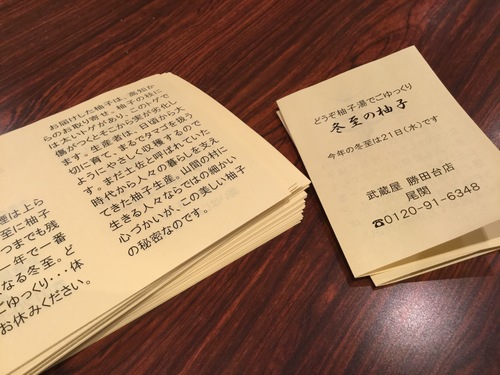 お届けした柚子は、高知か
らのお取り寄せ。柚子の枝に
は太いトゲがあり、このトゲで
傷がつくとそこから実が劣化し
ます。生産者は、日頃から大
切に育て、まるでタマゴを扱う
ようにやさしく収穫するので
す。まだ土佐と呼ばれていた
時代から人々の暮らしを支え
てきた柚子生産。山間の村に
生きる人々ならではの細かい
心づかいが、この美しい柚子
の秘密なのです。
は上ら
至に柚子
つまでも残
一年で一番
なる冬至。ど
ごゆっくり・・・体
お休みください。
どうぞ柚子湯でごゆっくり
冬至の柚子
今年の冬至は21日(水)です
武蔵屋 勝田台店
尾関
☎0120-91-6348